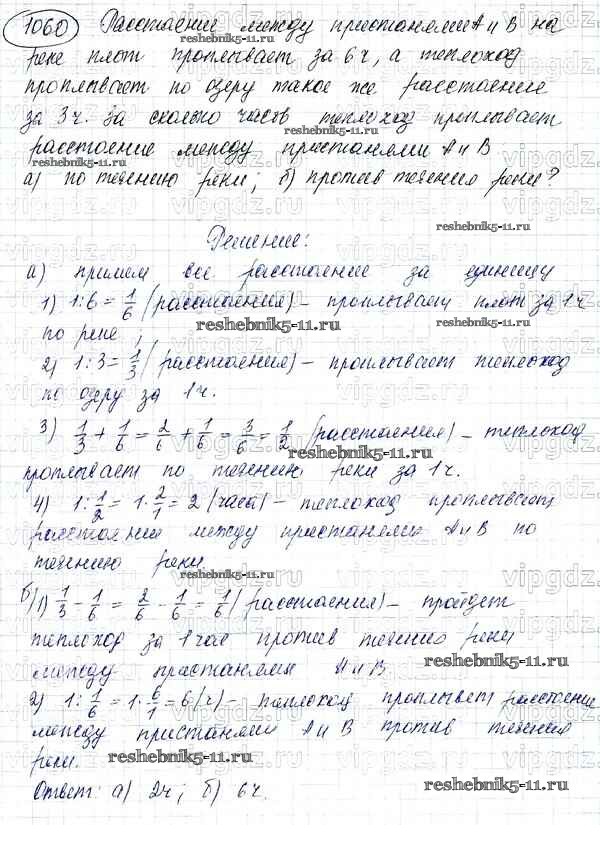 1060 Расстояние между пристанями А и В на
реке плот проплывает за 6ч, а теплоход
проплывает по озеру такое же расстояние
за 3ч. За сколько часов теплоход проплывает
расстояние между пристанями А и В
а) по течению реки; б) против течения реки?
Решение:
а) примем все расстояние за единицу
1) 1:6 = 1/6 (расстояния) – проплывает плот за 1ч
по реке;
2) 1:3 = 1/3 (расстояния) – проплывает теплоход
по озеру за 1ч.
3) 1/3 + 1/6 = 2/6 + 1/6 = 3/6 = 1/2 (расстояния) – теплоход
проплывает по течению реки за 1ч.
4) 1:1/2 = 1·2/1 = 2 (часа) – теплоход проплывает
расстояние между пристанями А и В по
течению реки.
б) 1) 1/3 - 1/6 = 2/6 - 1/6 = 1/6 (расстояния) – пройдет
теплоход за 1 час против течения реки
между пристанями А и В.
2) 1:1/6 = 1·6/1 = 6 (ч) – теплоход проплывет расстояние
между пристанями А и В против течения
реки.
Ответ: а) 2ч; б) 6ч.
reshebnik5-11.ru
vipgdz.ru